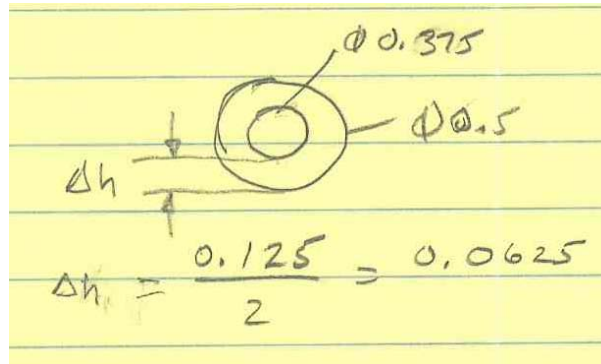 Φ 0.375
Φ 0.5
Δh
Δh = 0.125 / 2 = 0.0625